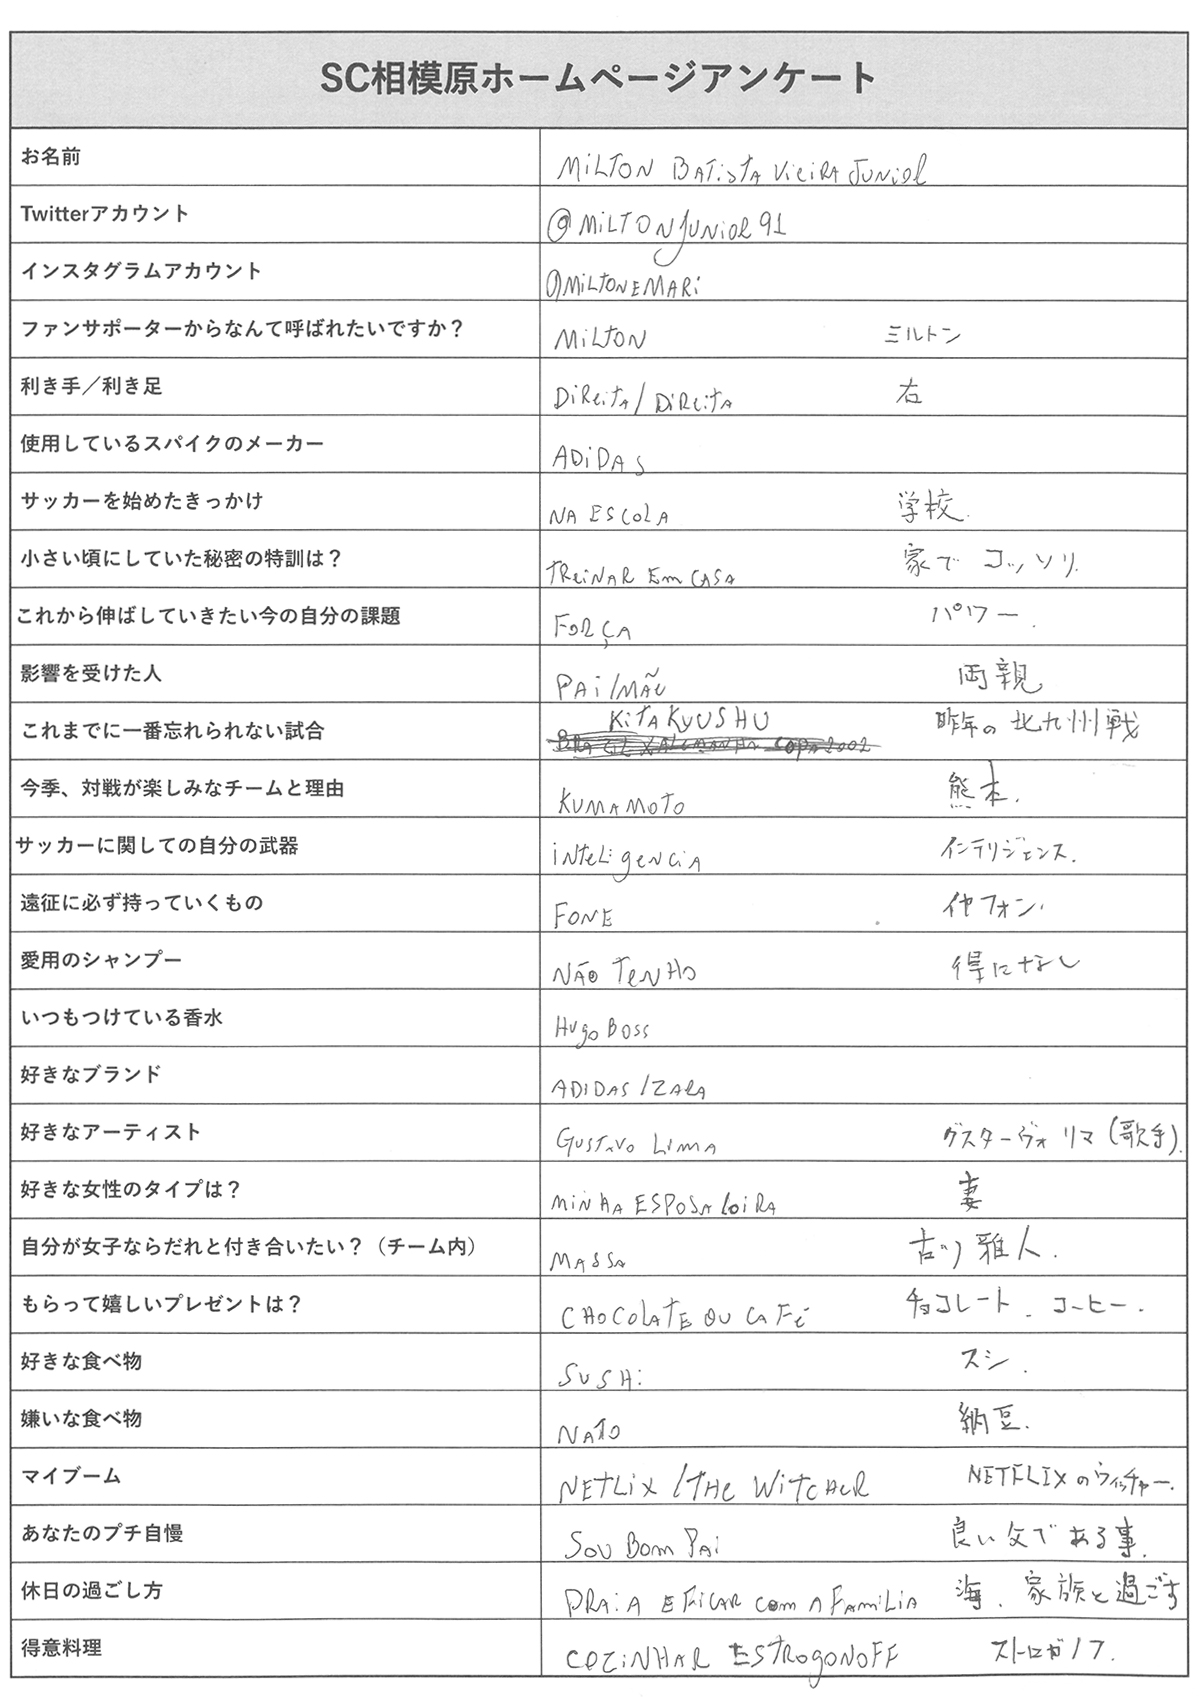 SC相模原ホームページアンケート
お名前 MiLTON BATiSTA VieiRA JUNioR
Twitterアカウント @MiLTONJUNioR91
インスタグラムアカウント @MiLTONEMARi
ファンサポーターからなんて呼ばれたいですか？ MiLTON ミルトン
利き手／利き足 DiReiTA/DiReiTA 右
使用しているスパイクのメーカー ADiDAS
サッカーを始めたきっかけ NA ESCOLA 学校.
小さい頃にしていた秘密の特訓は？ TReiNAR Em CASA 家で コッソリ.
これから伸ばしていきたい今の自分の課題 FORÇA パワー.
影響を受けた人 PAi/MÃE 両親
これまでに一番忘れられない試合 KiTAKYUSHU 昨年の北九州戦
BRAZIL X ALEMANHA COPA 2002
今季、対戦が楽しみなチームと理由 KUMAMOTO 熊本.
サッカーに関しての自分の武器 iNTeLigeNCiA インテリジェンス.
遠征に必ず持っていくもの FONE イヤフォン.
愛用のシャンプー NÃO TeNHO 得になし
いつもつけている香水 HUgo BOSS
好きなブランド ADIDAS/ZARA
好きなアーティスト GUSTAVO LIMA グスターヴォ リマ(歌手).
好きな女性のタイプは？ MiNHA ESPOSA LOiRA 妻
自分が女子ならだれと付き合いたい？（チーム内） MASSA 古ツ 雅人.
もらって嬉しいプレゼントは？ CHOCOLATE OU CAFé チョコレート. コーヒー.
好きな食べ物 SUSHi スシ.
嫌いな食べ物 NATO 納豆.
マイブーム NETLiX/THe WiTCHeR NETFLIXのウィッチャー.
あなたのプチ自慢 SOU BOm PAi 良い父である事.
休日の過ごし方 PRAiA E FiCAR Com A FAmiLIA 海. 家族と過ごす
得意料理 COZiNHAR ESTROgONOFF ストロガノフ.